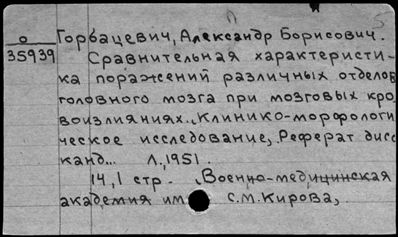 Горбацевич, Александр Борисович.
о
35939
Сравнительная характеристи-
ка поражений различных отделов
головного мозга при мозговых кро-
воизлияниях. Клинико-морфологи-
ческое исследование, Реферат дисс.
канд... Л., 1951.
14,1 стр. Военно-медицинская
академия им. С.М.Кирова,